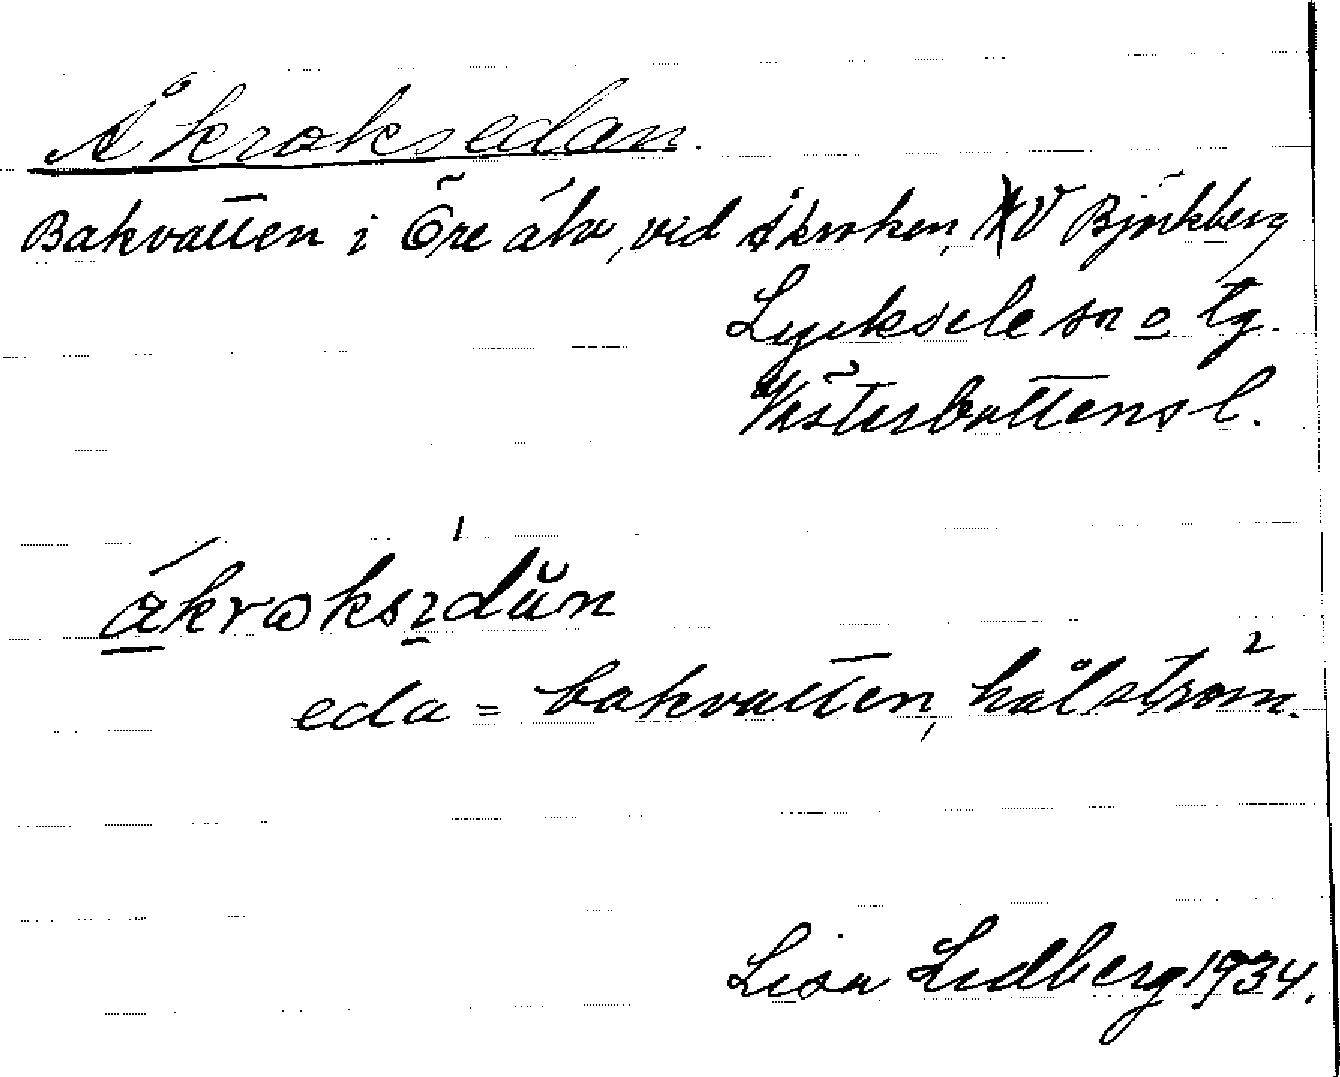 Åkroksedan.
Bakvatten i Öre älv, vid Åkroken, V Björkberg
Lycksele sn o tg.
Västerbottens l.
åkrɷksıdŭn
eda = bakvatten, hålström.
Lisa Lidberg 1934.